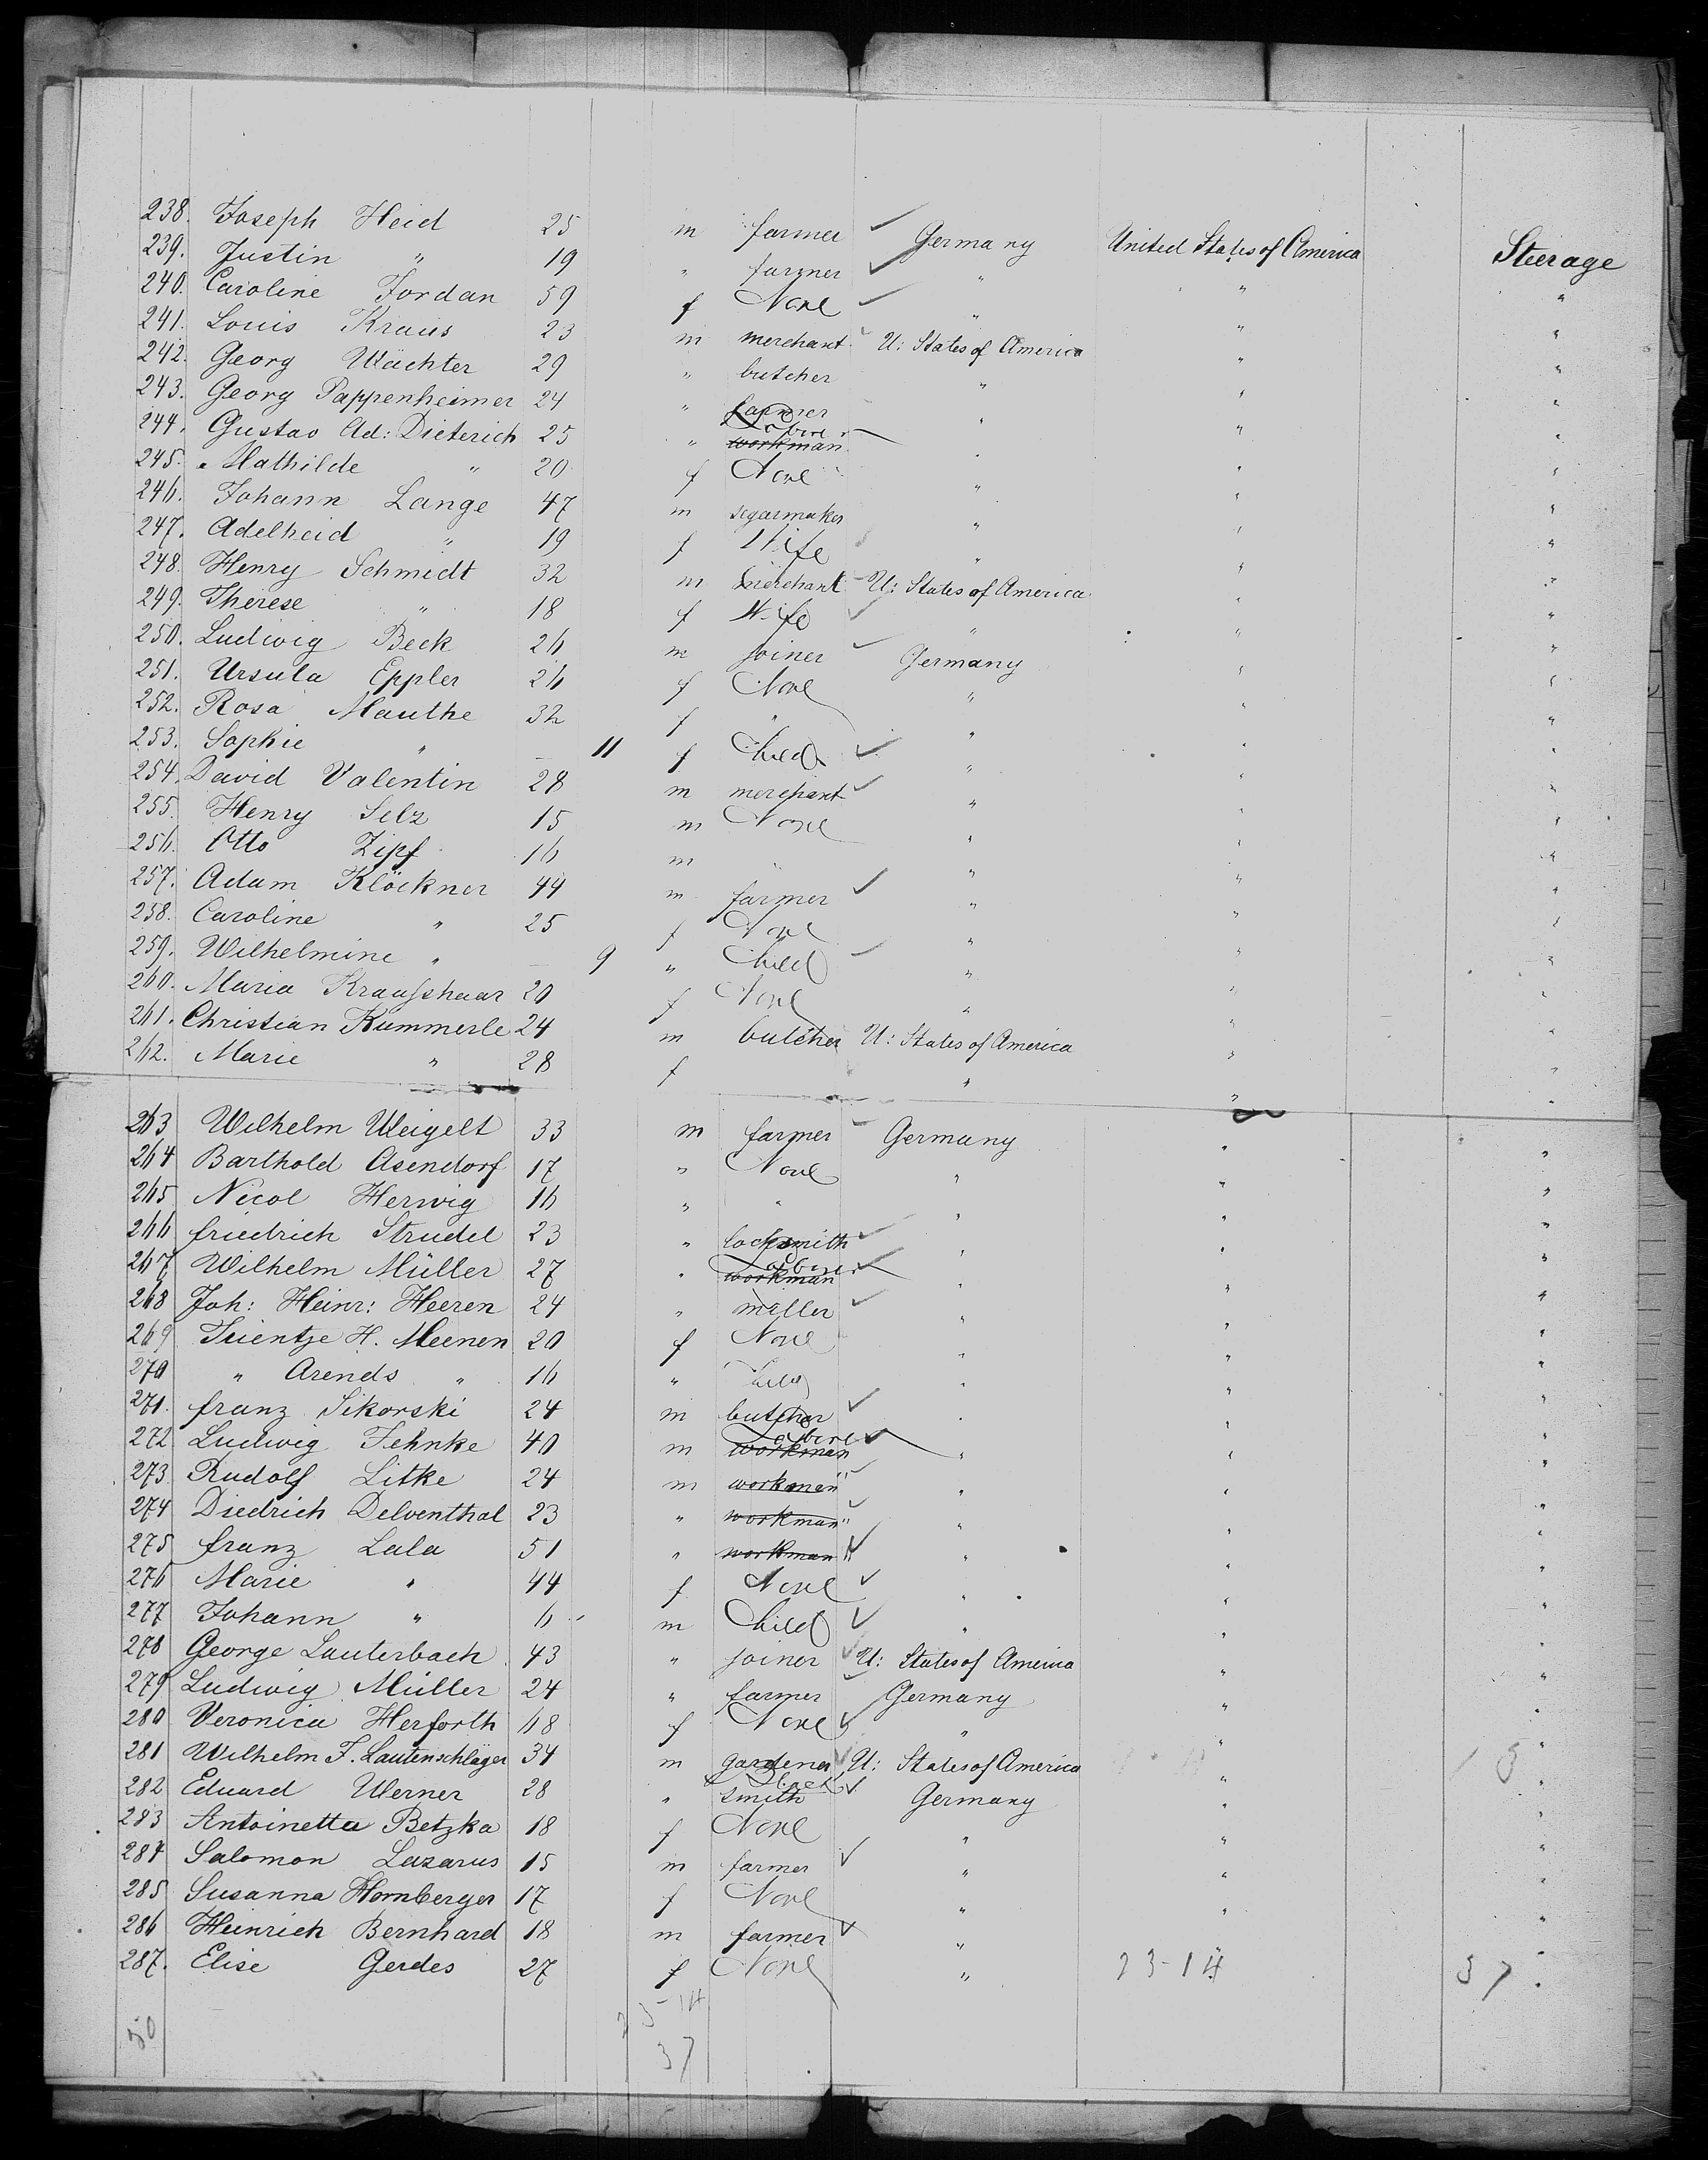 238. Joseph Heid 25 m farmer ✓ Germany United States of America Steerage
239. Justin " 19 " farmer ✓ " " "
240. Caroline Jordan 59 f None ✓ " " "
241. Louis Kraus 23 m merchant U: States of America " "
242. Georg Wächter 29 " butcher " " "
243. Georg Pappenheimer 24 " farmer " " "
244. Gustav Ad: Dieterich 25 " workman Laborer " " "
245. Mathilde " 20 f None " " "
246. Johann Lange 47 m segarmaker " " "
247. Adelheid " 19 f Wife " " "
248. Henry Schmidt 32 m merchant U: States of America " "
249. Therese " 18 f Wife ✓ " " "
250. Ludwig Beck 26 m joiner ✓ Germany " "
251. Ursula Eppler 26 f None " " "
252. Rosa Mauthe 32 f " " " "
253. Sophie " — 11 f Child ✓ " " "
254. David Valentin 28 m merchant ✓ " " "
255. Henry Selz 15 m None " " "
256. Otto Zipf 16 m " " " "
257. Adam Klöckner 44 m farmer ✓ " " "
258. Caroline " 25 f None " " "
259. Wilhelmine " — 9 " Child " " "
260. Maria Kraufshaar 20 f None " " "
261. Christian Kümmerle 24 m butcher U: States of America " "
262. Marie " 28 f " " "
263 Wilhelm Weigelt 33 m farmer Germany " "
264 Barthold Asendorf 17 " None " " "
265 Nicol Herwig 16 " " " " "
266 friedrich Strudel 23 " locksmith ✓ " " "
267 Wilhelm Müller 27 " workman Laborer ✓ " " "
268 Joh: Heinr: Heeren 24 " miller ✓ " " "
269 Trientje H. Meenen 20 f None " " "
270 " Arends " 16 " " " "
271. franz Sikorski 24 m butcher ✓ " " "
272 Ludwig Jehnke 40 m workman Laborer ✓ " " "
273 Rudolf Litke 24 m workman " " " "
274 Diedrich Delventhal 23 " workman " ✓ " " "
275 franz Lala 51 " workman " ✓ " " "
276 Marie " 44 f None ✓ " " "
277 Johann " 6 m Child ✓ " " "
278 George Lauterbach 43 " joiner ✓ U: States of America " "
279 Ludwig Müller 24 " farmer Germany " "
280 Veronica Herforth 68 f None ✓ " " "
281 Wilhelm F. Lautenschläger 34 m gardener ✓ U: States of America " "
282 Eduard Werner 28 " Black smith ✓ Germany " "
283 Antoinetta Betzka 18 f None " " "
284 Salomon Lazarus 15 m farmer ✓ " " "
285 Susanna Hornberger 17 f None " " "
286 Heinrich Bernhard 18 m farmer ✓ " " "
287. Elise Gerdes 27 f None " 23-14 37
50
37